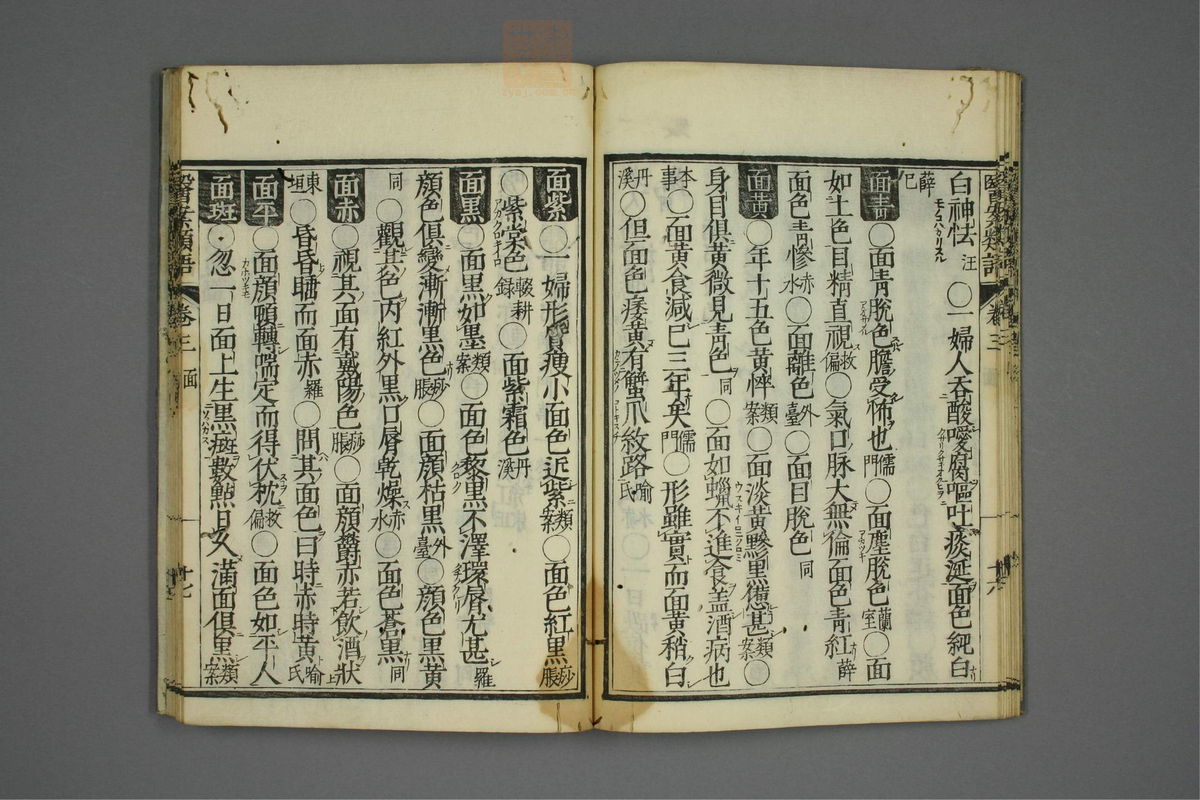 白神怯汪〇一婦人吞酸噯腐嘔吐痰涎面色純白
薛
面青〇面青脫色膽受怖也儒門〇面塵脫色蘭室〇面
如土色目精直視救偏〇氣口脉大無倫面色靑紅薛
面色靑慘赤水〇面離色外臺〇面目脫色同
面黃〇年十五色黃悴類案〇面淡黃黲黑憊甚類案〇
身目俱黃微見靑色同〇面如蠟不進食盖酒病也
本事〇面黃食減已三年矣儒門〇形雖實而面黃稍白
丹溪〇但面色痿黃有蟹爪紋路喻氏
醫案類語
卷三
面
面紫〇一婦形質瘦小面色近紫類案〇面色紅黑痧脹
〇紫棠色輟耕錄〇面紫霜色丹溪
面黑〇面黑如墨類案〇面色黎黑不澤環唇尤甚羅
顏色俱變漸漸黑色痧脹〇面顏枯黑外臺〇顏色黑黃
同〇觀其色丙紅外黑口唇乾燥赤水〇面色蒼黑同
面赤〇視其面有戴陽色痧脹〇面顏欝赤若飮酒狀
東垣〇昏昏瞎而面赤羅〇問其面色曰時赤時黃喻氏
面平〇面顏頓轉喘定而得伏枕救偏〇面色如平人
面斑〇忽一日面上生黑斑數點日久滿面俱黑類案
醫案類語
卷三
面